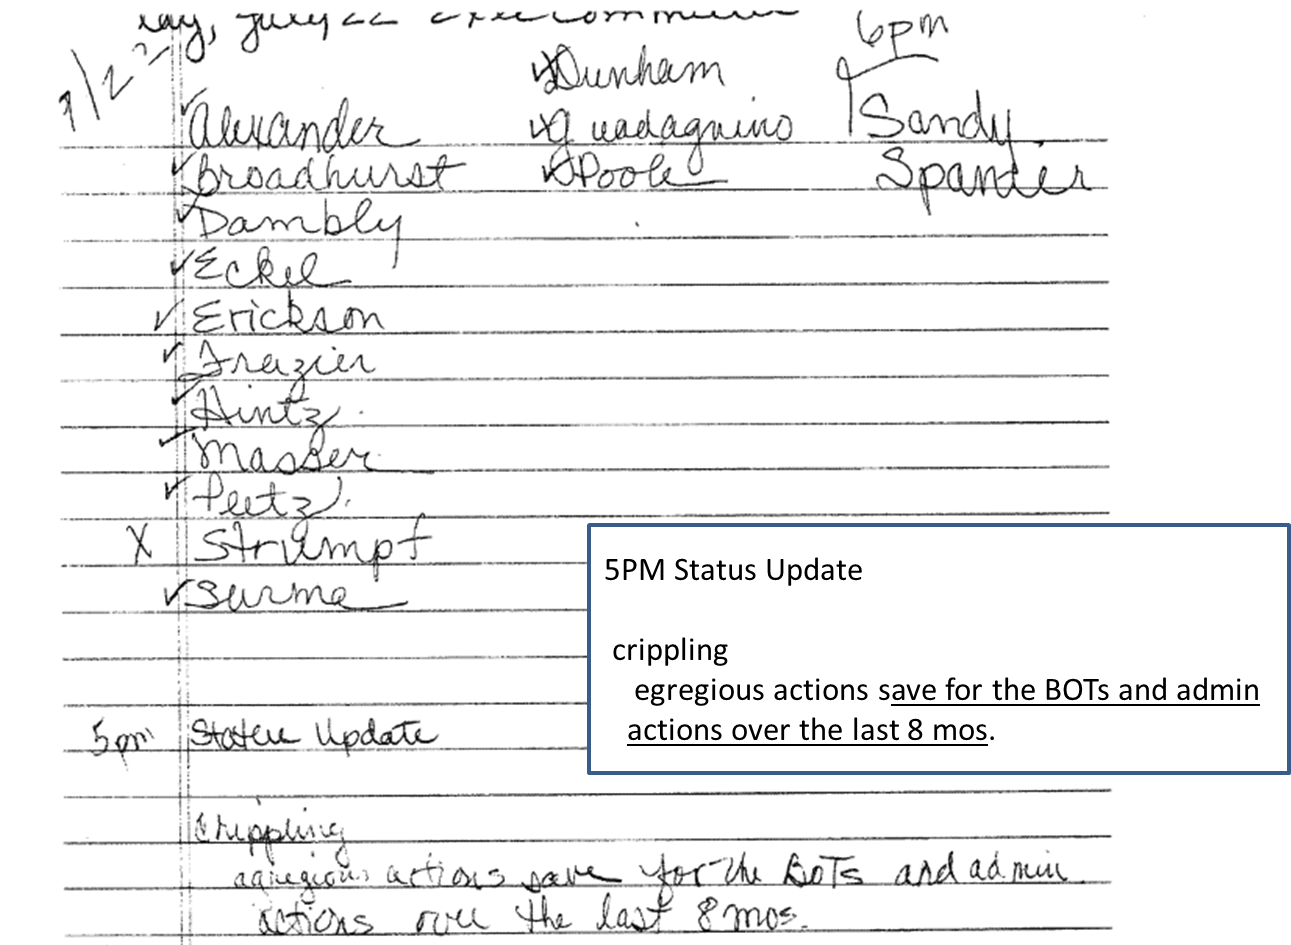 day, July 22 Exec Committee
7/22
6pm
✓Dunham
✓Alexander ✓Guadagnino Sandy
✓Broadhurst ✓Poole Spanier
✓Dambly
✓Eckel
✓Erickson
✓Frazier
✓Hintz.
✓Masser
✓Peetz.
X Strumpf
✓Surma
5PM Status Update
crippling
egregious actions save for the BOTs and admin
actions over the last 8 mos.
5pm Status Update
Crippling
agregious actions save for the BOTs and admin
actions over the last 8 mos.